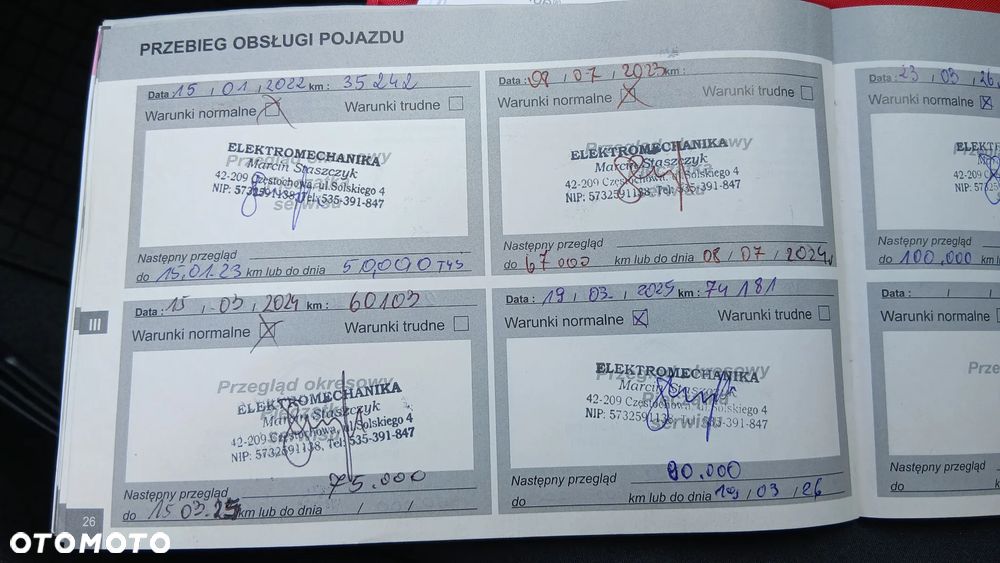 PRZEBIEG OBSŁUGI POJAZDU
Data : 15 / 01 / 2022 km : 35242
Warunki normalne Warunki trudne
Przegląd okresowy
ELEKTROMECHANIKA
Marcin Staszczyk
42-209 Częstochowa, ul. Solskiego 4
NIP: 5732591138, Tel: 535-391-847
serwisu
Następny przegląd
do 15.01.23 km lub do dnia 50,000 TYS
Data : 08 / 07 / 2023 km :
Warunki normalne Warunki trudne
Przegląd okresowy
ELEKTROMECHANIKA
Marcin Staszczyk
42-209 Częstochowa, ul. Solskiego 4
NIP: 5732591138, Tel: 535-391-847
serwisu
Następny przegląd
do 67000 km lub do dnia 08 / 07 / 2024
Data : 15 / 03 / 2024 km : 60103
Warunki normalne Warunki trudne
Przegląd okresowy
ELEKTROMECHANIKA
Marcin Staszczyk
42-209 Częstochowa, ul. Solskiego 4
NIP: 5732591138, Tel: 535-391-847
Następny przegląd 75.000
do 15 03.25 km lub do dnia / /
Data : 19 / 03 / 2025 km : 74 181
Warunki normalne Warunki trudne
Przegląd okresowy
ELEKTROMECHANIKA
Marcin Staszczyk
42-209 Częstochowa, ul. Solskiego 4
NIP: 5732591138, Tel: 535-391-847
serwisu
Następny przegląd 90.000
do km lub do dnia 19 / 03 / 26
Data : 23 / 03 / 26
Warunki normalne
ELEKTR
42-209
NIP: 573
Następny przegląd
do 100,000 km l
Data : / /
Warunki normalne
Prze
Następny przegląd
do k
III
26
OTOMOTO